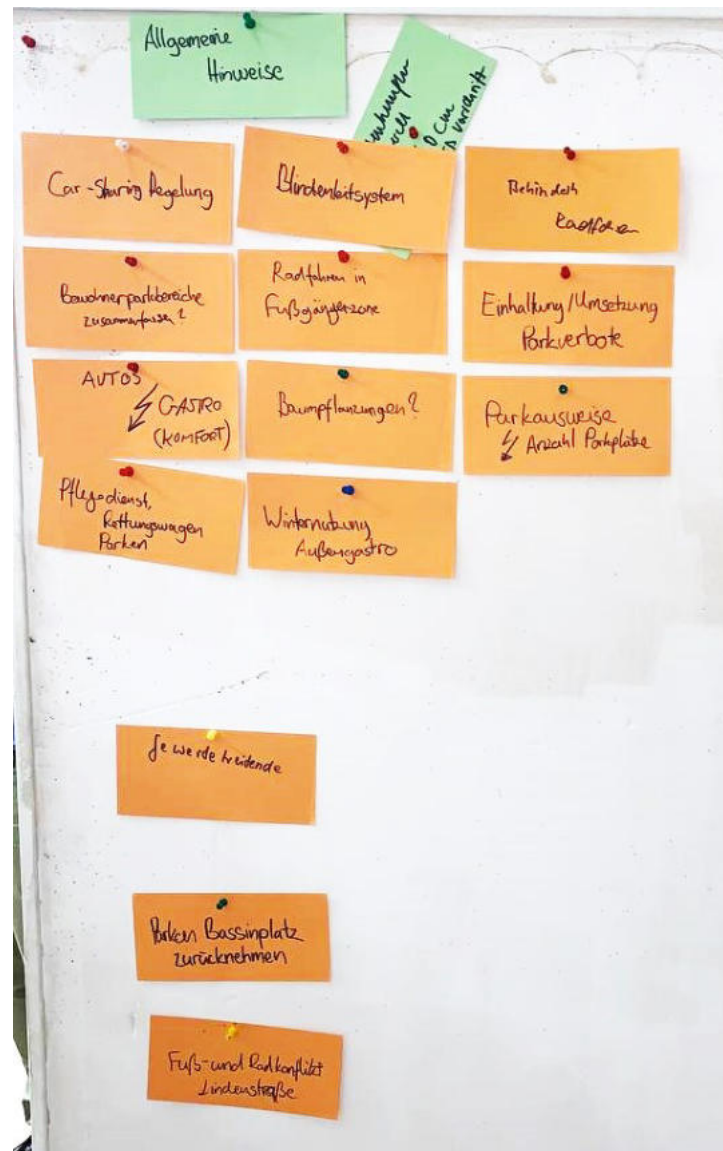 Allgemeine
Hinweise
0 cm
vorschrift
Car-Sharing Regelung
Blindenleitsystem
Behinderte
Radfahrer
Bewohnerparkbereiche
zusammenfassen?
Radfahren in
Fußgängerzone
Einhaltung/Umsetzung
Parkverbote
AUTOS
GASTRO
(KOMFORT)
Baumpflanzungen?
Parkausweise
Anzahl Parkplätze
Pflegedienst,
Rettungswagen
Parken
Winternutzung
Außengastro
Gewerbetreibende
Parken Bassinplatz
zurücknehmen
Fuß- und Radkonflikt
Lindenstraße